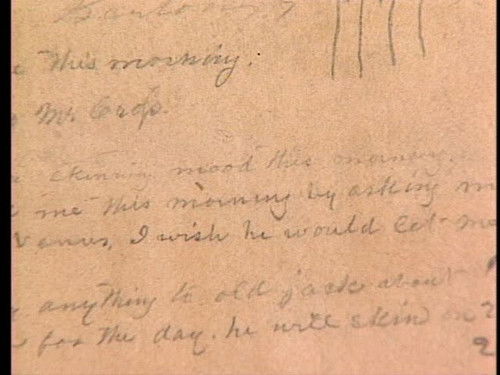 this morning.
Mr. Craps.
skinning mood this morning.
me this morning by asking m
I wish he would let me
anything to old jack about
for the day. he will skin